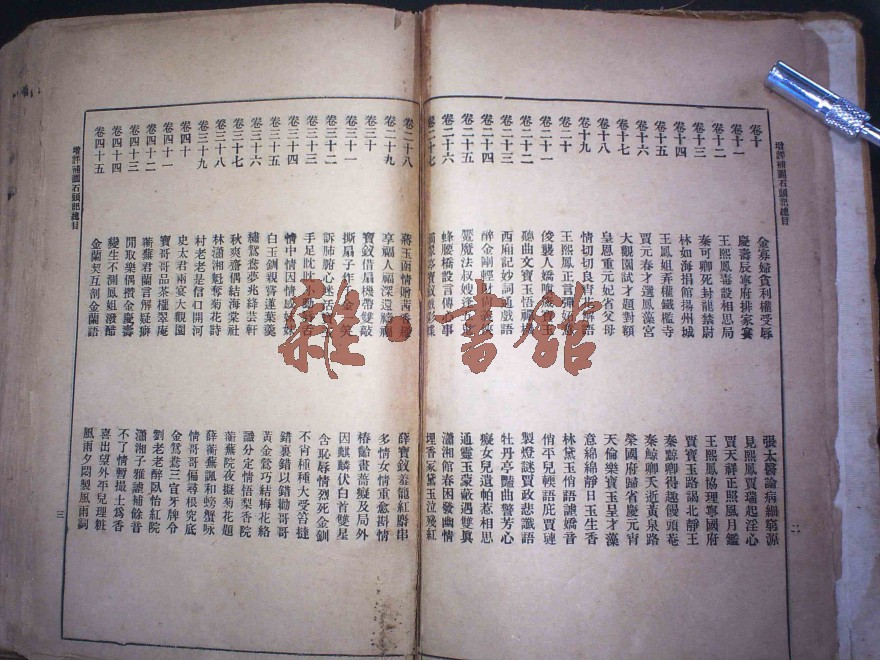 增評補圖石頭記總目
二
卷十 金寡婦貪利權受辱 張太醫論病細窮源
卷十一 慶壽辰寧府排家宴 見熙鳳賈瑞起淫心
卷十二 王熙鳳毒設相思局 賈天祥正照風月鑑
卷十三 秦可卿死封龍禁尉 王熙鳳協理寧國府
卷十四 林如海捐館揚州城 賈寶玉路謁北靜王
卷十五 王鳳姐弄權鐵檻寺 秦鯨卿得趣饅頭菴
卷十六 賈元春才選鳳藻宮 秦鯨卿夭逝黃泉路
卷十七 大觀園試才題對額 榮國府歸省慶元宵
卷十八 皇恩重元妃省父母 天倫樂寶玉呈才藻
卷十九 情切切良宵花解語 意綿綿靜日玉生香
卷二十 王熙鳳正言彈妒意 林黛玉俏語謔嬌音
卷二十一 俊襲人嬌嗔箴寶玉 俏平兒軟語庇賈璉
卷二十二 聽曲文寶玉悟禪機 製燈謎賈政悲讖語
卷二十三 西廂記妙詞通戲語 牡丹亭豔曲警芳心
卷二十四 醉金剛輕財尚義俠 癡女兒遺帕惹相思
卷二十五 魘魔法叔嫂逢五鬼 通靈玉蒙蔽遇雙眞
卷二十六 蜂腰橋設言傳心事 瀟湘館春困發幽情
卷二十七 滴翠亭寶釵戲彩蝶 埋香冢黛玉泣殘紅
卷二十八 蔣玉函情贈茜香羅 薛寶釵羞籠紅麝串
卷二十九 享福人福深還禱福 多情女情重愈斟情
卷三十 寶釵借扇機帶雙敲 椿齡畫薔癡及局外
卷三十一 撕扇子作千金一笑 因麒麟伏白首雙星
卷三十二 訴肺腑心迷活寶玉 含恥辱情烈死金釧
卷三十三 手足眈眈小動唇舌 不肖種種大受笞撻
卷三十四 情中情因情感妹妹 錯裏錯以錯勸哥哥
卷三十五 白玉釧親嘗蓮葉羹 黃金鶯巧結梅花絡
卷三十六 繡鴛鴦夢兆絳芸軒 識分定情悟梨香院
卷三十七 秋爽齋偶結海棠社 蘅蕪院夜擬菊花題
卷三十八 林瀟湘魁奪菊花詩 薛蘅蕪諷和螃蟹咏
卷三十九 村老老是信口開河 情哥哥偏尋根究底
卷四十 史太君兩宴大觀園 金鴛鴦三宣牙牌令
卷四十一 賈寶玉品茶櫳翠庵 劉老老醉臥怡紅院
卷四十二 蘅蕪君蘭言解疑癖 瀟湘子雅謔補餘音
卷四十三 閒取樂偶攢金慶壽 不了情暫撮土爲香
卷四十四 變生不測鳳姐潑醋 喜出望外平兒理粧
卷四十五 金蘭契互剖金蘭語 風雨夕悶製風雨詞
增評補圖石頭記總目
三
雜·書館